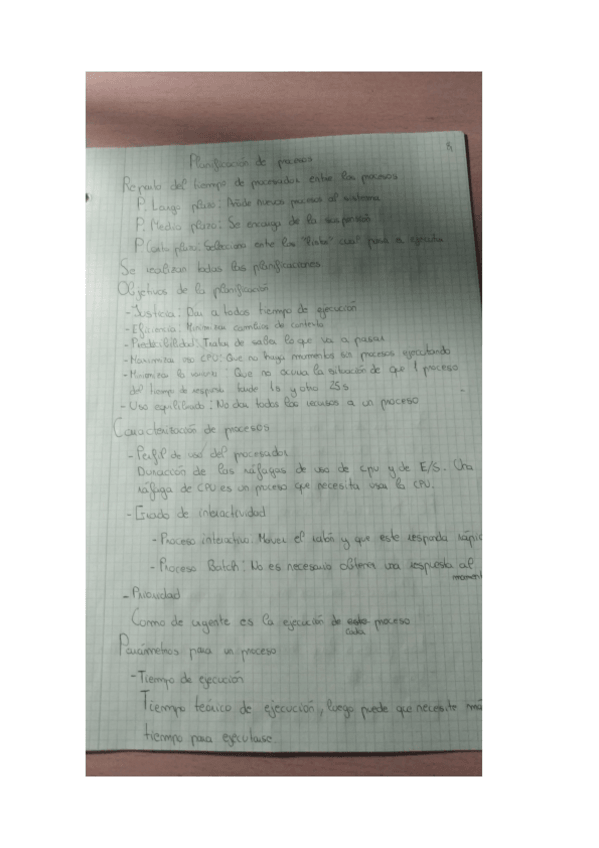 8
Planificación de procesos
Reparto del tiempo de procesador entre los procesos
P. Largo plazo: Añade nuevos procesos al sistema
P. Medio plazo: Se encarga de la suspensión
P Corto plazo: Selecciona entre los "listo" cual pasa a ejecutar
Se realizan todas las planificaciones
Objetivos de la planificación
- Justicia: Dar a todos tiempo de ejecución
- Eficiencia: Minimizar cambios de contexto
- Predecibilidad: Tratar de saber lo que va a pasar
- Maximizar uso CPU: Que no haya momentos sin procesos ejecutando
- Minimizar la varianza: Que no ocurra la situación de que 1 proceso
del tiempo de respuesta tarde 1s y otro 25s
- Uso equilibrado: No dar todos los recursos a un proceso
Caracterización de procesos
- Perfil de uso del procesador
Duracción de las ráfagas de uso de cpu y de E/S. Una
ráfaga de CPU es un proceso que necesita usar la CPU.
- Grado de interactividad
- Proceso interactivo: Mover el ratón y que este responda rápid
- Proceso Batch: No es necesario obtener una respuesta al
moment
- Prioridad
Como de urgente es la ejecución de este proceso
cada
Parámetros para un proceso
- Tiempo de ejecución
Tiempo teórico de ejecución, luego puede que necesite má
tiempo para ejecutarse